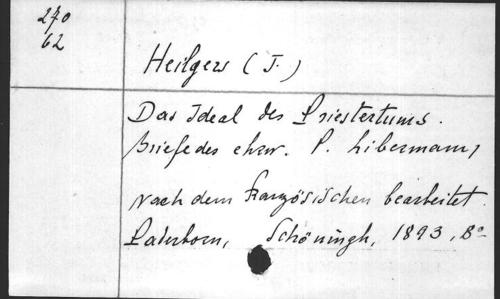 270
62
Heilgers (J.)
Das Ideal des Priestertums.
Briefe des ehrw. P. Libermann,
nach dem Französischen bearbeitet.
Paderborn, Schöningh, 1893, 8°